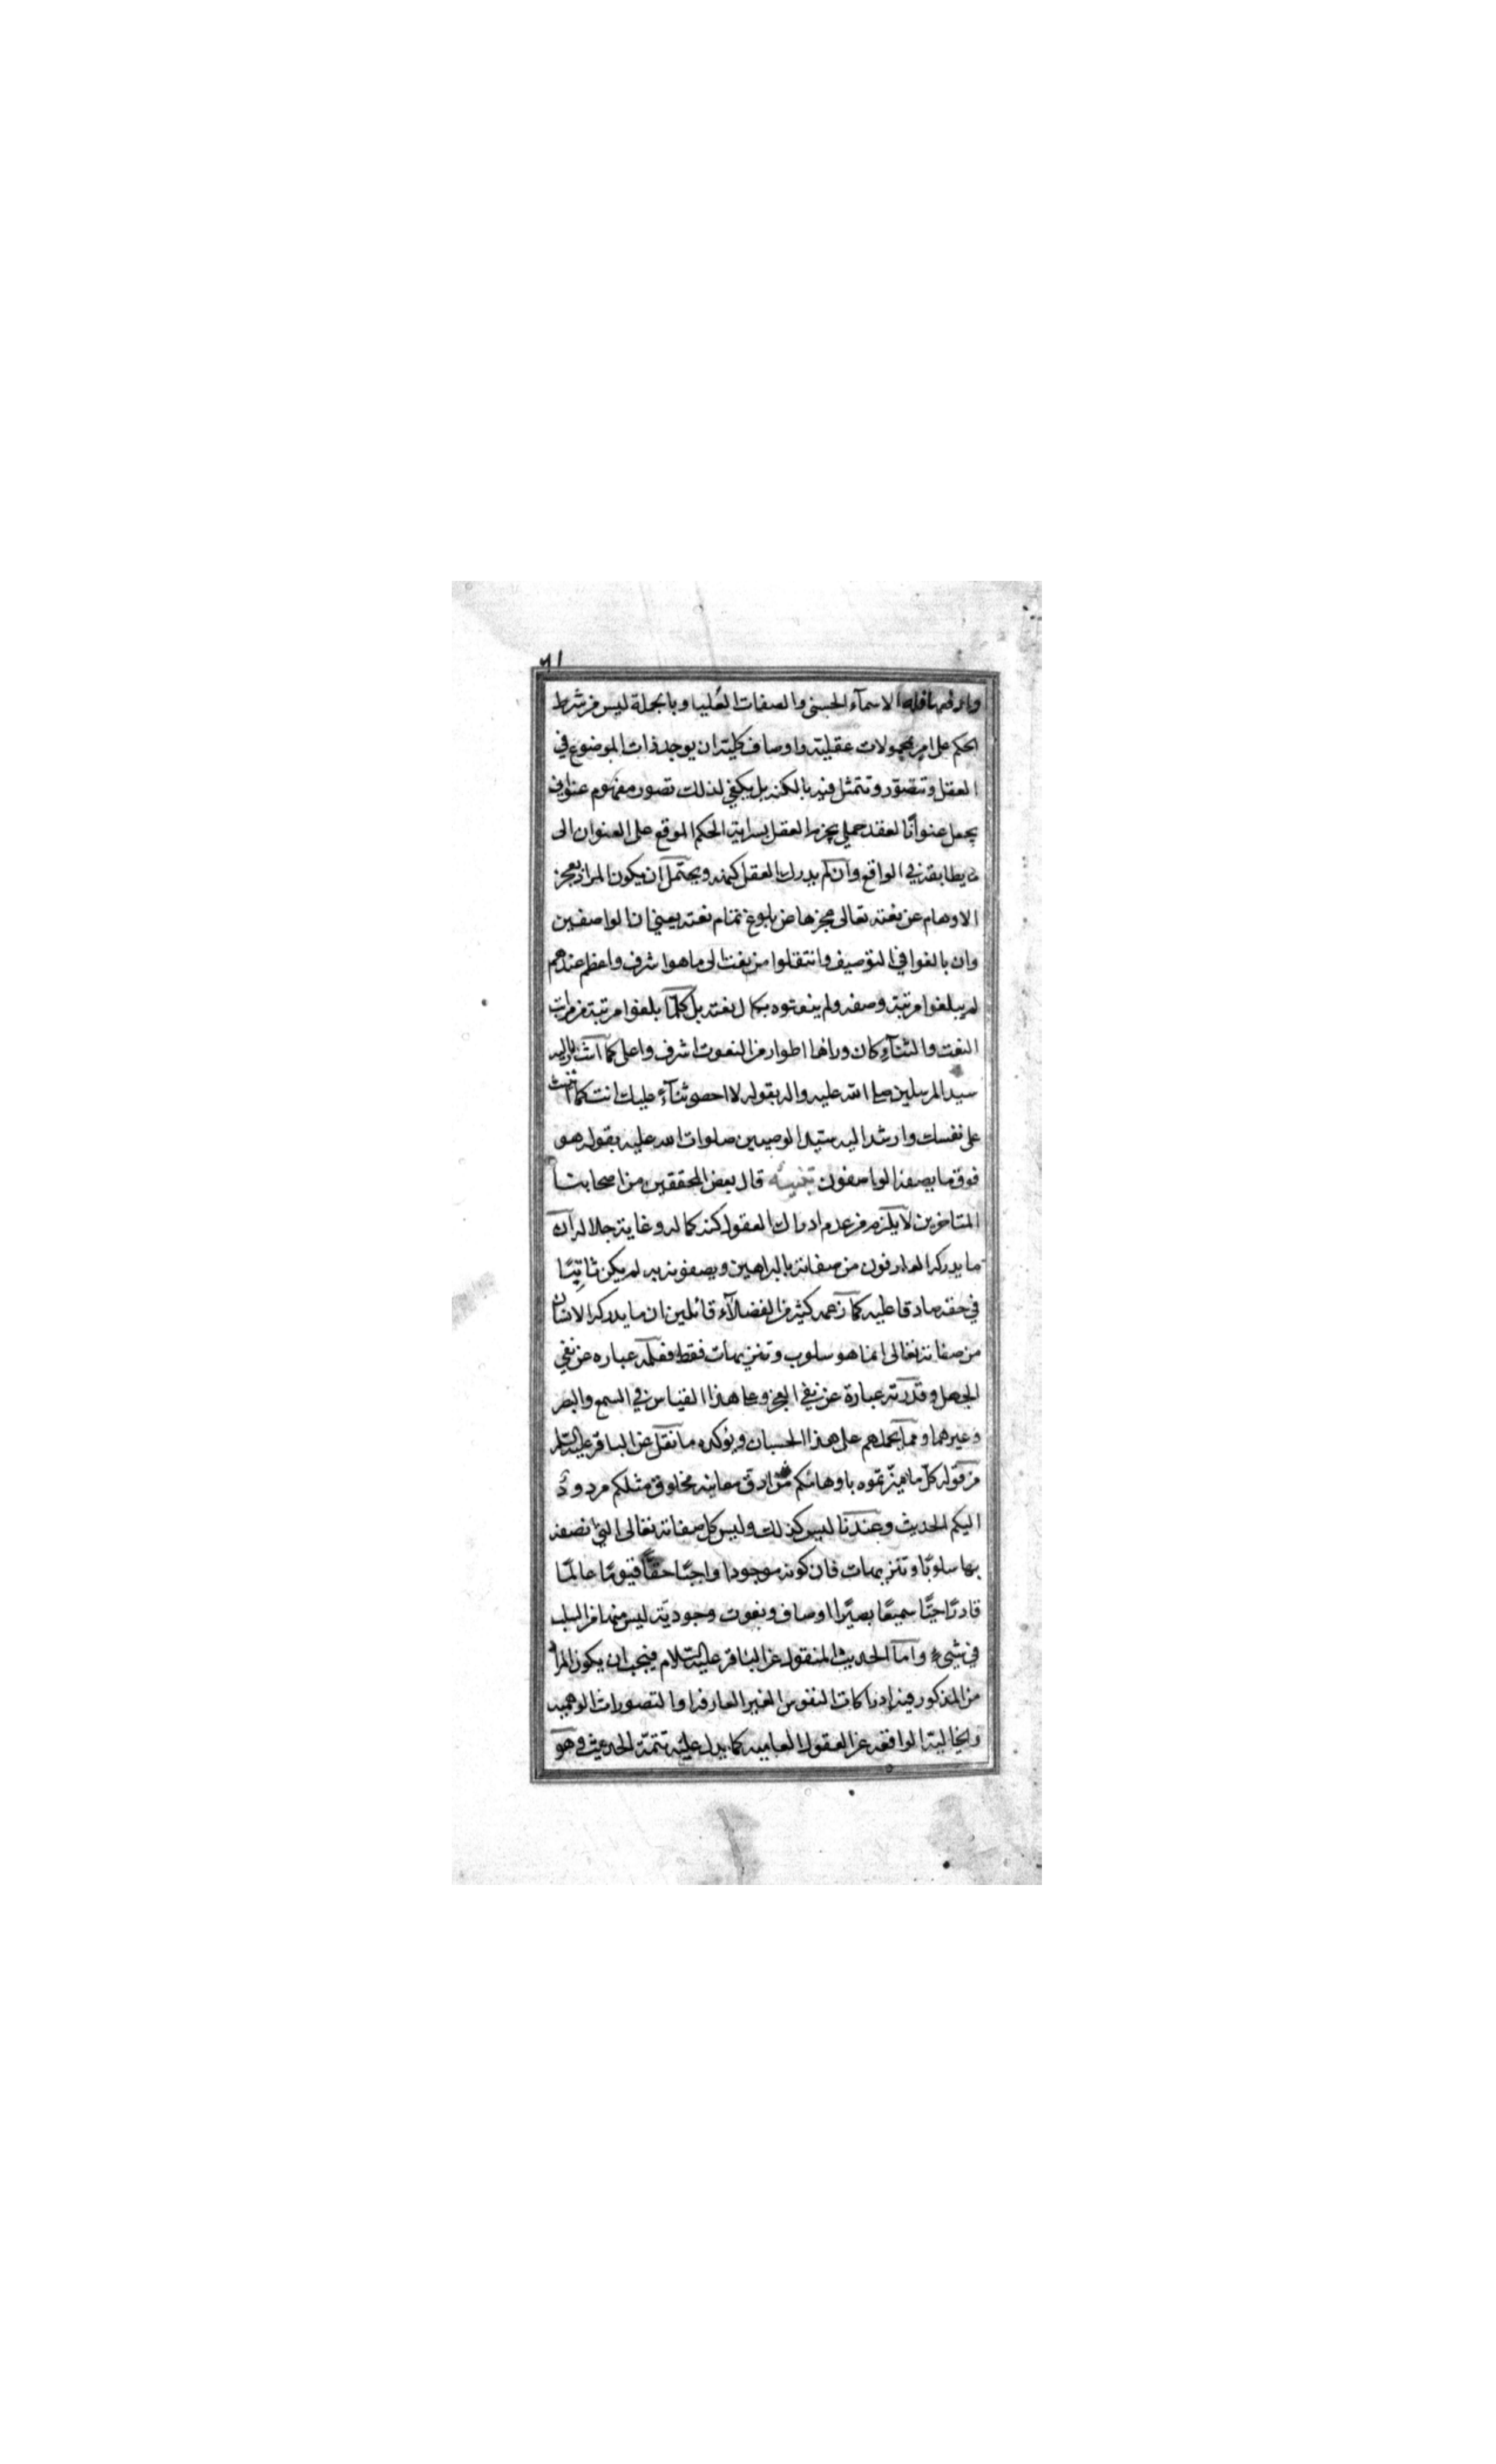 ٦١
وارفعها فله الاسمآء الحسنى والصفات العُليا وبالجملة ليس من شرط
الحكم على امر بمحمولات عقلية واوصاف كلية ان يوجد ذات الموضوع في
العقل وتتصوّر وتتمثل فيه بالكنه بل يكفي لذلك تصور مفهوم عنوانى
يجعل عنوانًا لعقد حملي يجزم العقل بسراية الحكم الموقع على العنوان الى
ما يطابقه في الواقع وان لم يدرك العقل كنهه ويحتمل ان يكون المراد بعجز
الاوهام عن نعته تعالى عجزها عن بلوغ تمام نعته يعنى ان الواصفين
وان بالغوا في التوصيف وانتقلوا من نعت الى ما هو اشرف واعظم عندهم
لم يبلغوا مرتبة وصفه ولم ينعتوه بكمال نعته بل كلّما بلغوا مرتبة من مراتب
النعت والثنآء كان وراها اطوار من النعوت اشرف واعلى كما اشار اليه
سيد المرسلين صلى الله عليه واله بقوله لا احصى ثنآءً عليك انت كما اثنيت
على نفسك وارشد اليه سيد الوصيين صلوات الله عليه بقوله هو
فوق ما يصفه الواصفون تنبيه قال بعض المحققين من اصحابنا
المتاخرين لا يلزم من عدم ادراك العقول كنه كماله وغاية جلاله ان
ما يدركه العارفون من صفاته بالبراهين ويصفونه به لم يكن ثابتًا
في حقه صادقا عليه كما زعمه كثير من الفضلآء قائلين ان ما يدركه الانسان
من صفاته تعالى انما هو سلوب وتنزيهات فقط فعلمه عباره عن نفي
الجهل وقدرته عبارة عن نفي العجز وعلى هذا القياس في السمع والبصر
وغيرهما ومما يحملهم على هذا الحسبان ويؤكده ما نقل عن الباقر عليه السلام
من قوله كلّ ما ميّزتموه باوهامكم في ادق معانيه مخلوق مثلكم مردودٌ
اليكم الحديث وعندنا ليس كذلك وليس كل صفاته تعالى التي نصفه
بها سلوبًا وتنزيهات فان كونه موجودا واجبًا حقًا قيومًا عالمًا
قادرًا حيًّا سميعًا بصيرًا اوصاف ونعوت وجوديّة ليس منها من السلب
في شيءٍ وامّا الحديث المنقول عن الباقر عليه السلام فيجب ان يكون المراد
من المذكور فيه ادراكات النفوس الغير العارفه او التصورات الوهمية
والخيالية الواقعه عن العقول العاميه كما يدل عليه تتمّة الحديث وهو